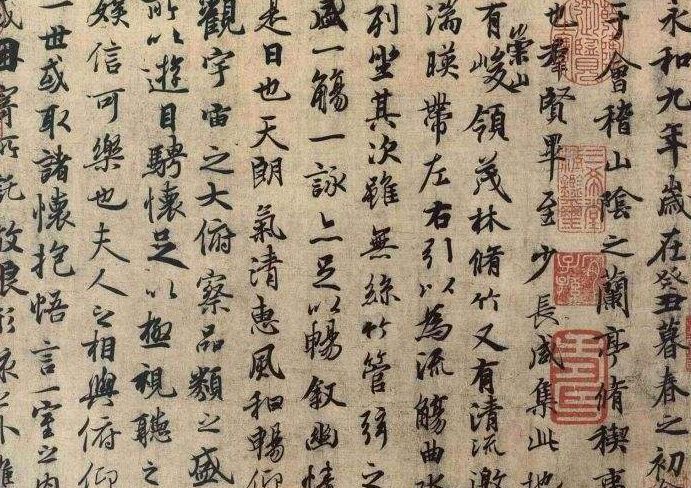 永和九年歲在癸丑暮春之初
于會稽山陰之蘭亭脩稧事
也群賢畢至少長咸集此地
有崇山峻領茂林脩竹又有清流激
湍暎帶左右引以為流觴曲水
列坐其次雖無絲竹管弦之
盛一觴一詠亦足以暢叙幽情
是日也天朗氣清惠風和暢仰
觀宇宙之大俯察品類之盛
所以遊目騁懷足以極視聽之
娛信可樂也夫人之相與俯仰
一世或取諸懷抱悟言一室之內
或因寄所託放浪形